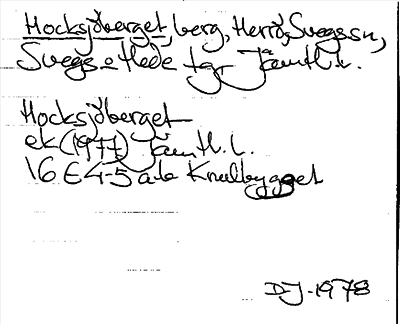 Hocksjöberget, berg, Herrö, Svegs sn,
Svegs o Hede tgr Jämtl. l.
Hocksjöberget
ek (1977) Jämtl. l.
16 E 4-5 a-b Knullbygget
DJ-1978